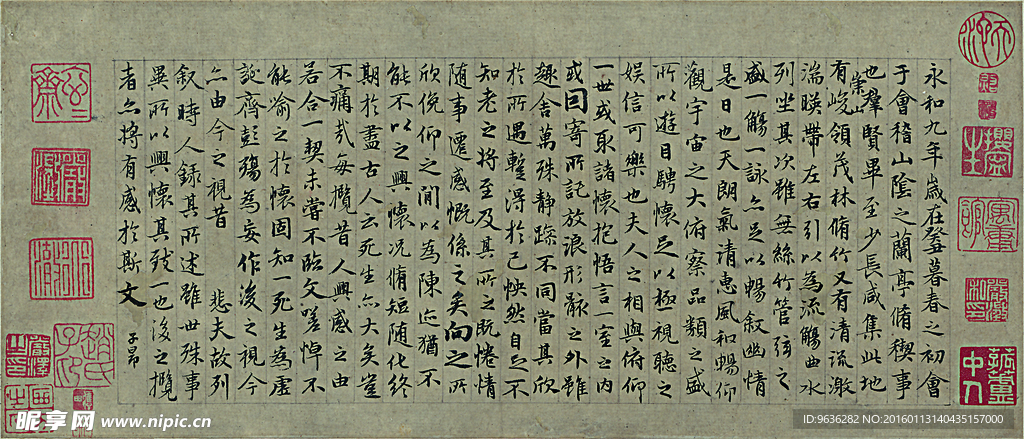 永和九年歲在癸丑暮春之初會
于會稽山陰之蘭亭脩稧事
也羣賢畢至少長咸集此地
有崇山峻領茂林脩竹又有清流激
湍暎帶左右引以為流觴曲水
列坐其次雖無絲竹管弦之
盛一觴一詠亦足以暢叙幽情
是日也天朗氣清惠風和暢仰
觀宇宙之大俯察品類之盛
所以遊目騁懷足以極視聽之
娛信可樂也夫人之相與俯仰
一世或取諸懷抱悟言一室之内
或因寄所託放浪形骸之外雖
趣舍萬殊静躁不同當其欣
於所遇蹔得於己怏然自足不
知老之將至及其所之既惓情
隨事遷感慨係之矣向之所
欣俛仰之閒以為陳迹猶不
能不以之興懷况脩短随化終
期於盡古人云死生亦大矣豈
不痛哉每攬昔人興感之由
若合一契未嘗不臨文嗟悼不
能喻之於懷固知一死生為虛
誕齊彭殤為妄作後之視今
亦由今之視昔 悲夫故列
叙時人録其所述雖世殊事
異所以興懷其致一也後之攬
者亦將有感於斯文
子昂
昵享网 www.nipic.cn
ID:9636282 NO:20160113140435157000